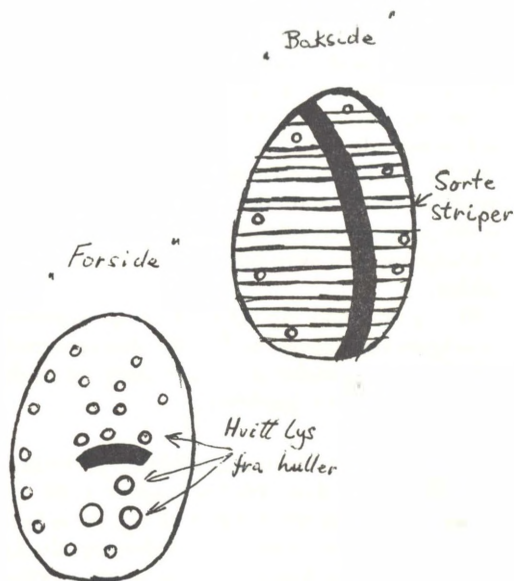 "Bakside"
Sorte
striper
"Forside"
Hvitt Lys
fra huller